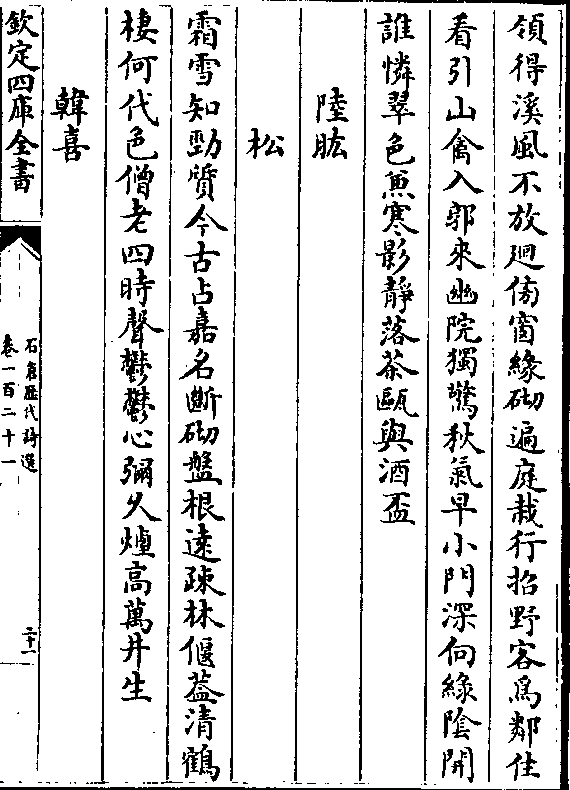 領得溪風不放廻傍窗緣砌遍庭栽行招野客爲鄰住
看引山禽入郭來幽院獨驚秋氣早小門深向緣陰開
誰憐翠色兼寒影靜落茶甌與酒盃
陸肱
松
霜雪知勁質今古占嘉名斷砌盤根遠疎林偃葢清鶴
棲何代色僧老四時聲鬱鬱心彌久煙高萬井生
韓喜
欽定四庫全書
石倉歷代詩選
卷一百二十一
二十一